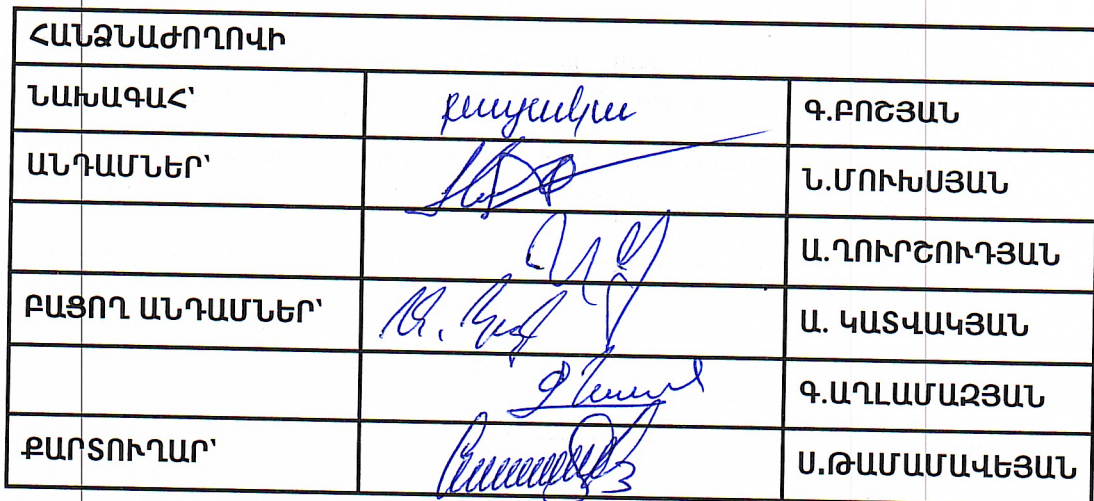 ՀԱՆՁՆԱԺՈՂՈՎԻ
ՆԱԽԱԳԱՀ՝ բացակա Գ.ԲՈՇՅԱՆ
ԱՆԴԱՄՆԵՐ՝ Ն.ՄՈՒԽՍՅԱՆ
Ա.ՂՈՒՐՇՈՒԴՅԱՆ
ԲԱՑՈՂ ԱՆԴԱՄՆԵՐ՝ Ա. ԿԱՏՎԱԿՅԱՆ
Գ.ԱՂԼԱՄԱԶՅԱՆ
ՔԱՐՏՈՒՂԱՐ՝ Ս.ԹԱՄԱՄԱՎԵՅԱՆ